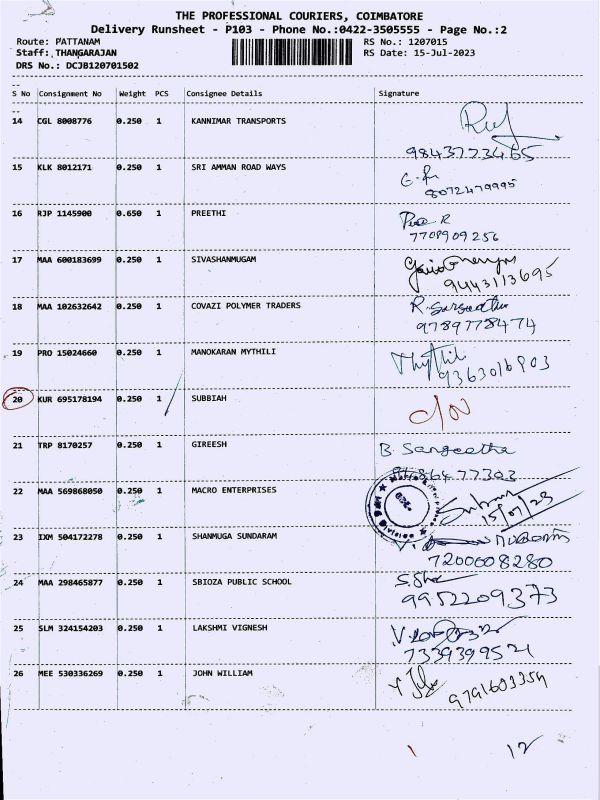 THE PROFESSIONAL COURIERS, COIMBATORE
Delivery Runsheet - P103 - Phone No.:0422-3505555 - Page No.:2
Route: PATTANAM RS No.: 1207015
Staff: THANGARAJAN RS Date: 15-Jul-2023
DRS No.: DCJB120701502
S No Consignment No Weight PCS Consignee Details Signature
14 CGL 8008776 0.250 1 KANNIMAR TRANSPORTS
9843773465
15 KLK 8012171 0.250 1 SRI AMMAN ROAD WAYS
8072479995
16 RJP 1145900 0.650 1 PREETHI
7708909256
17 MAA 600183699 0.250 1 SIVASHANMUGAM
9443113695
18 MAA 102632642 0.250 1 COVAZI POLYMER TRADERS R. Sangeetha
9789778474
19 PRO 15024660 0.250 1 MANOKARAN MYTHILI Mythili
9363016903
20 KUR 695178194 0.250 1 SUBBIAH
21 TRP 8170257 0.250 1 GIREESH B. Sangeetha
22 MAA 569868050 0.250 1 MACRO ENTERPRISES
15/07/23
23 IXM 504172278 0.250 1 SHANMUGA SUNDARAM
7200008280
24 MAA 298465877 0.250 1 SBIOZA PUBLIC SCHOOL
9952209373
25 SLM 324154203 0.250 1 LAKSHMI VIGNESH
7339399521
26 MEE 530336269 0.250 1 JOHN WILLIAM
9791603359
12